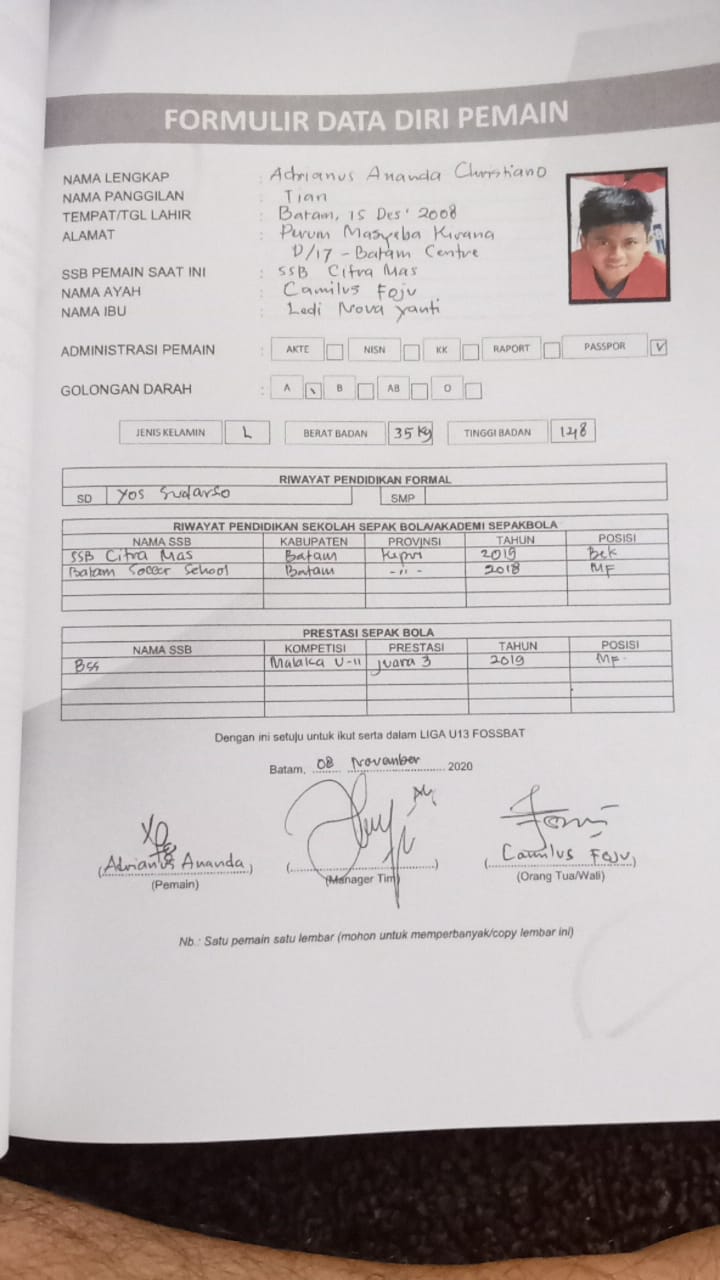 FORMULIR DATA DIRI PEMAIN
NAMA LENGKAP : Adrianus Ananda Christiano
NAMA PANGGILAN : Tian
TEMPAT/TGL LAHIR : Batam, 15 Des' 2008
ALAMAT : Perum Masyeba Kirana
D/17 - Batam Centre
SSB PEMAIN SAAT INI : SSB Citra Mas
NAMA AYAH : Camilus Foju
NAMA IBU : Ledi Nova Yanti
ADMINISTRASI PEMAIN : AKTE NISN KK RAPORT PASSPOR V
GOLONGAN DARAH : A B AB O
JENIS KELAMIN L BERAT BADAN 35 kg TINGGI BADAN 148
RIWAYAT PENDIDIKAN FORMAL
SD Yos Sudarso SMP
RIWAYAT PENDIDIKAN SEKOLAH SEPAK BOLA/AKADEMI SEPAKBOLA
NAMA SSB KABUPATEN PROVINSI TAHUN POSISI
SSB Citra Mas Batam Kepri 2019 Bek
Batam Soccer School Batam -"- 2018 MF
PRESTASI SEPAK BOLA
NAMA SSB KOMPETISI PRESTASI TAHUN POSISI
BSS Malaka U-11 Juara 3 2019 MF
Dengan ini setuju untuk ikut serta dalam LIGA U13 FOSSBAT
Batam, 08 November 2020
(Adrianus Ananda) (Camilus Foju)
(Pemain) (Manager Tim) (Orang Tua/Wali)
Nb.: Satu pemain satu lembar (mohon untuk memperbanyak/copy lembar ini)